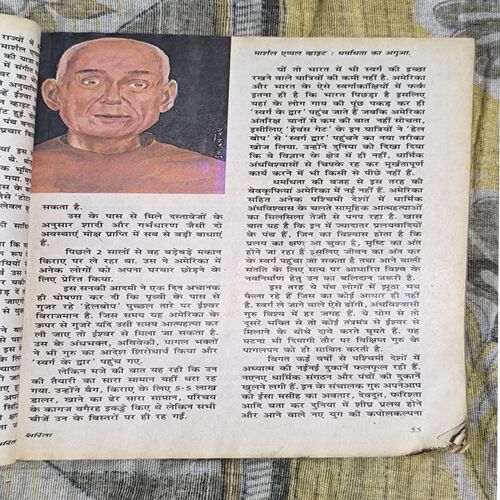 मार्शल एप्पल व्हाइट : धर्मांधता का अगुआ.
यों तो भारत में भी स्वर्ग की इच्छा
रखने वाले यात्रियों की कमी नहीं है. अमेरिका
और भारत के ऐसे स्वर्गाकांक्षियों में फर्क
इतना ही है कि भारत पिछड़ा है इसलिए
यहां के लोग गाय की पूंछ पकड़ कर ही
'स्वर्ग के द्वार' पहुंच जाते हैं जबकि अमेरिका
अंतरिक्ष यानों से कम की बात नहीं सोचता,
इसीलिए 'हेवंस गेट' के इन यात्रियों ने 'हेल
बोप' से 'स्वर्ग द्वार' पहुंचने का नया तरीका
खोज लिया. उन्होंने दुनिया को दिखा दिया
कि वे विज्ञान के क्षेत्र में ही नहीं, धार्मिक
अंधविश्वासों से चिपके रह कर मूर्खतापूर्ण
कार्य करने में भी किसी से पीछे नहीं हैं.
धर्मांधता की वजह से इस तरह की
बेवकूफियां अमेरिका में नई नहीं हैं. अमेरिका
सहित अनेक पश्चिमी देशों में धार्मिक
अंधविश्वास के चलते सामूहिक आत्महत्याओं
का सिलसिला तेजी से पनप रहा है. खास
बात यह है कि इन में ज्यादातर प्रलयवादियों
के पंथ हैं, जिन का विश्वास होता है कि
प्रलय का क्षण आ चुका है, सृष्टि का अंत
होने जा रहा है इसलिए जीवन का अंत कर
के स्वर्ग पहुंचा जा सकता है तथा आने वाली
संतति के लिए सत्य पर आधारित विश्व के
नवनिर्माण हेतु उन का बलिदान जरूरी है.
इस तरह ये पंथ लोगों में झूठा भय
फैला रहे हैं जिस का कोई आधार ही नहीं
है. स्वर्ग ले जाने वाले ऐसे ढोंगी, अंधविश्वासी
गुरु विश्व में हर जगह हैं. ये योग से तो
दूसरे भक्ति से तो कोई तंत्रमंत्र से ईश्वर से
मिलाने के थोथे दावे करते घूमते हैं. यह
घटना भी दिमागी तौर पर विक्षिप्त गुरु के
पागलपन को ही साबित करती है.
विगत कई वर्षों से पश्चिमी देशों में
अध्यात्म की नईनई दुकानें फलफूल रही हैं.
नएनए धार्मिक संगठन और पंथों की दुकानें
खुलने लगी हैं. इन के संचालक गुरु अपनेआप
को ईसा मसीह का अवतार, देवदूत, फरिश्ता
आदि बता कर दुनिया में शीघ्र प्रलय होने
और आने वाले नए युग की कपोलकल्पना
55
सकता है.
उस के पास से मिले दस्तावेजों के
अनुसार शादी और गर्भधारण जैसी दो
अवस्थाएं मोक्ष प्राप्ति में सब से बड़ी बाधाएं
हैं.
पिछले 2 सालों से यह बड़ेबड़े मकान
किराए पर ले रहा था. उस ने अमेरिका में
अनेक लोगों को अपना घरबार छोड़ने के
लिए प्रेरित किया.
इस सनकी आदमी ने एक दिन अचानक
ही घोषणा कर दी कि पृथ्वी के पास से
गुजर रहे 'हेलबोप' पुच्छल तारे पर ईश्वर
विराजमान है. जिस समय यह अमेरिका के
ऊपर से गुजरे यदि उसी समय आत्महत्या कर
ली जाए तो ईश्वर से मिला जा सकता है.
उस के अंधभक्त, अविवेकी, पागल भक्तों
ने भी गुरु का आदेश शिरोधार्य किया और
'स्वर्ग के द्वार' पहुंच गए.
लेकिन मजे की बात यह रही कि उन
की तैयारी का सारा सामान यहीं धरा रह
गया. उन्होंने बैग, किराए के लिए 5-5 लाख
डालर, खाने का ढेर सारा सामान, परिचय
के कागज वगैरह इकट्ठे किए थे लेकिन सभी
चीजें उन के बिस्तरों पर ही रह गईं.
सरिता